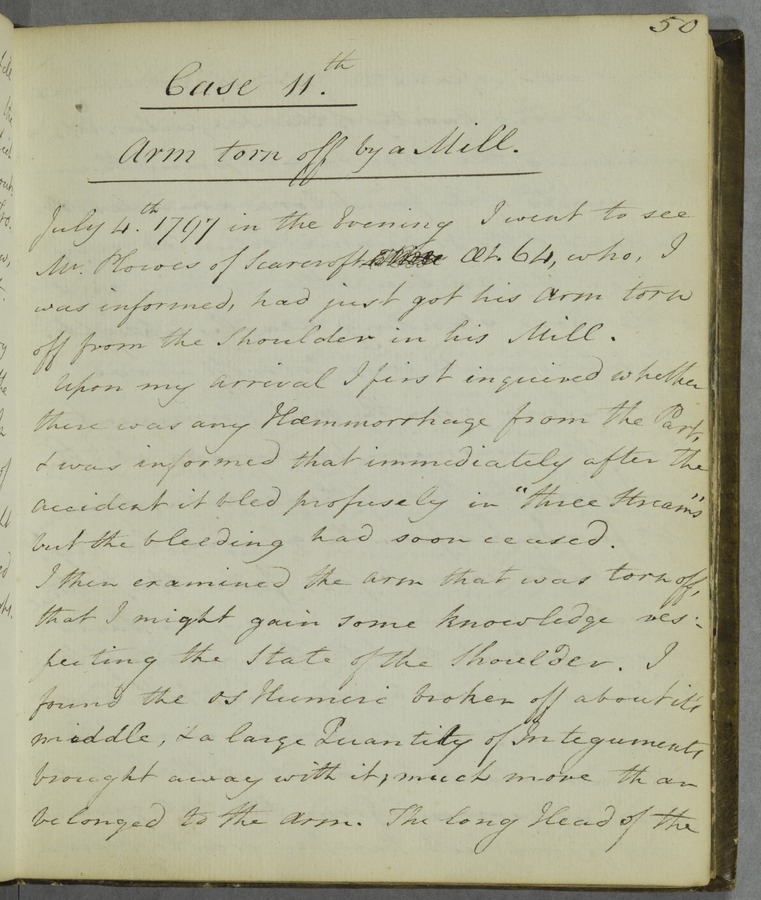 50
Case 11.th
Arm torn off by a Mill.
July 4.th 1797 in the Evening I went to see
Mr. Plowes of Scarcroft Æt. 64, who, I
was informed, had just got his Arm torn
off from the Shoulder in his Mill.
Upon my arrival I first inquired whether
there was any Hæmmorrhage from the Part,
& was informed that immediately after the
accident it bled profusely in "three Streams"
but the bleeding had soon ceased.
I then examined the arm that was torn off,
that I might gain some knowledge res:
pecting the State of the Shoulder. I
found the os Humeri broken off about it's
middle, & a large Quantity of Integuments
brought away with it, much more than
belonged to the arm. The long Head of the